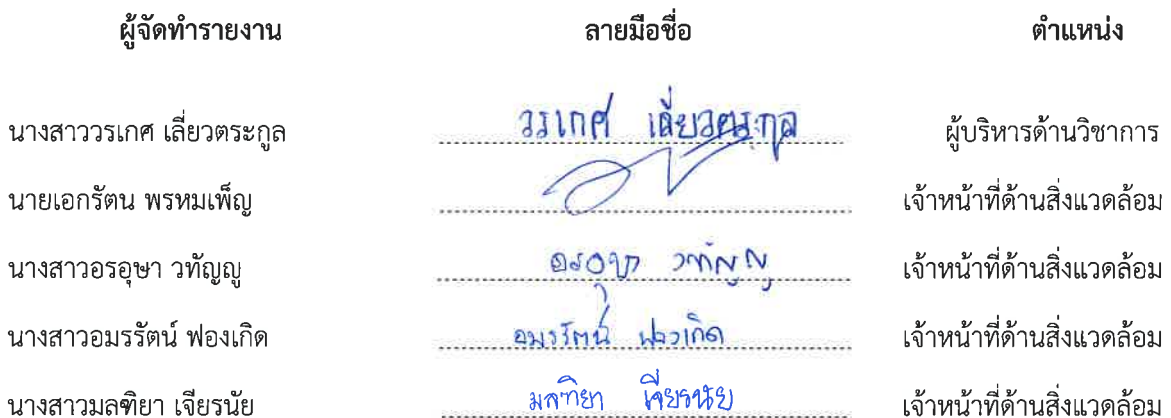 ผู้จัดทำรายงาน ลายมือชื่อ ตำแหน่ง
นางสาววรเกศ เลี่ยวตระกูล วรเกศ เลี่ยวตระกูล ผู้บริหารด้านวิชาการ
นายเอกรัตน พรหมเพ็ญ เจ้าหน้าที่ด้านสิ่งแวดล้อม
นางสาวอรอุษา วทัญญู อรอุษา วทัญญู เจ้าหน้าที่ด้านสิ่งแวดล้อม
นางสาวอมรรัตน์ ฟองเกิด อมรรัตน์ ฟองเกิด เจ้าหน้าที่ด้านสิ่งแวดล้อม
นางสาวมลฑิยา เจียรนัย มลฑิยา เจียรนัย เจ้าหน้าที่ด้านสิ่งแวดล้อม